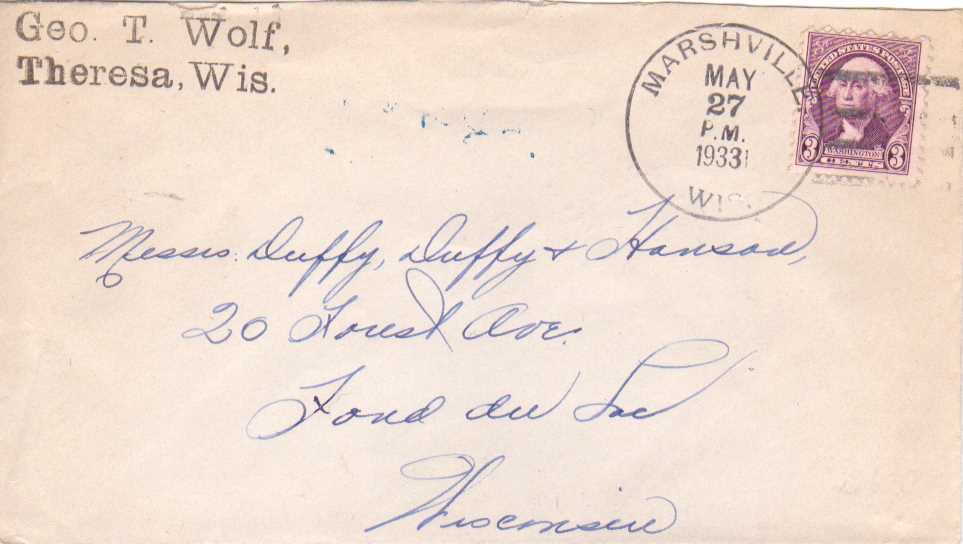 Geo. T. Wolf,
Theresa, Wis.
MARSHVILLE
MAY
27
P.M.
1933
WIS.
UNITED STATES POSTAGE
WASHINGTON
3 CENTS 3
Messrs. Duffy, Duffy + Hanson,
20 Forest Ave.
Fond du Lac
Wisconsin